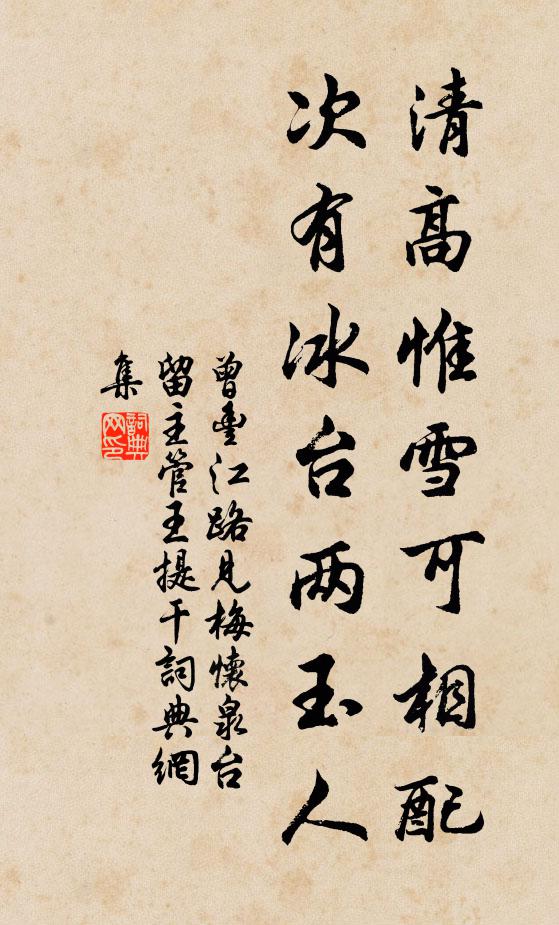 清高惟雪可相配
次有冰台两玉人
曾丰江路见梅懷泉台
留主管王提干詞典網
集
詞典
网印